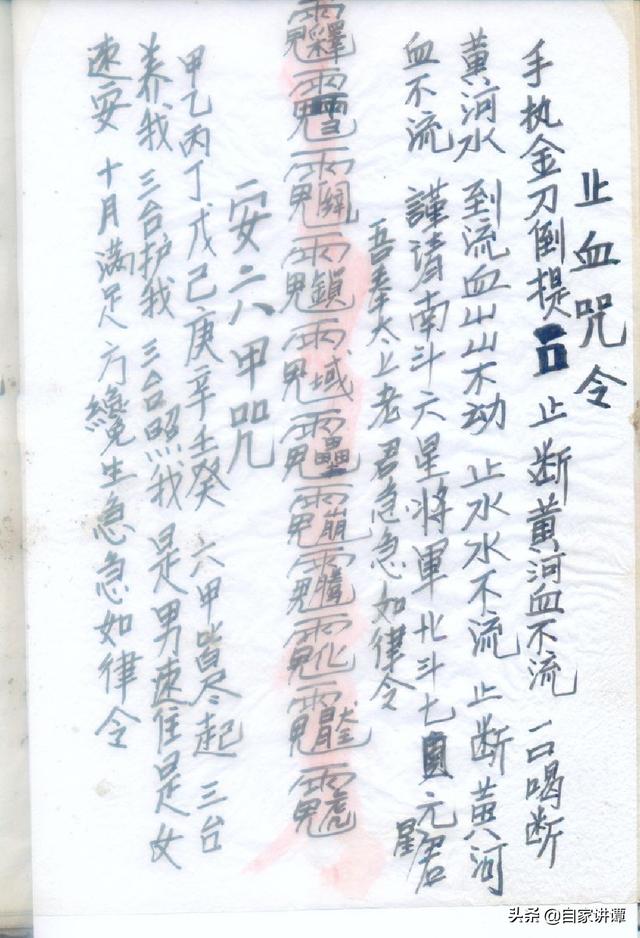 止血咒令
手执金刀倒提 止断黄河血不流 一口喝断
黄河水 到流血山山不动 止水水不流 止断黄河
血不流 謹請南斗六星将軍北斗七星元君
吾奉太上老君急急如律令
安六甲咒
甲乙丙丁戊己庚辛壬癸 六甲皆尽起 三台
养我 三台护我 三台照我 是男速住是女
速安 十月满足方纔生急急如律令
头条 @自家讲谭